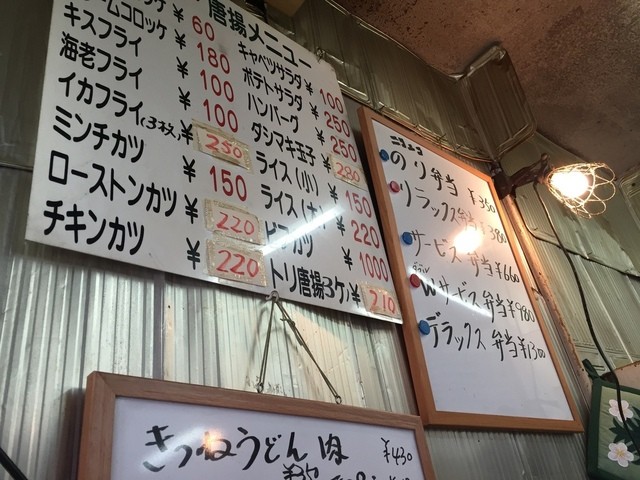 唐揚メニュー
ッケ ¥60
ームコロッケ ¥180
キスフライ ¥100
海老フライ ¥100
イカフライ(3枚) ¥250
ミンチカツ ¥150
ローストンカツ ¥220
チキンカツ ¥220
キャベツサラダ ¥100
ポテトサラダ ¥250
ハンバーグ ¥250
ダシマキ玉子 ¥280
ライス(小) ¥150
ライス(大) ¥220
カツ ¥1000
トリ唐揚3ケ ¥210
のり弁当 ¥350
リラックス弁当 ¥380
サービス弁当 ¥660
Wサービス弁当 ¥980
デラックス弁当 ¥1300
きつねうどん 肉 ¥430